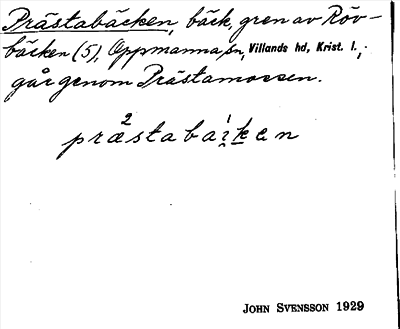 Prästabäcken, bäck, gren av Röv-
bäcken (5), Oppmanna sn, Villands hd, Krist. l.,
går genom Prästamossen.
2 1
præstabaʹken
JOHN SVENSSON 1929